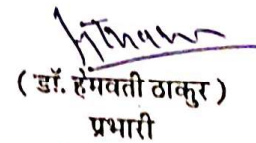 ( डॉ. हेमवती ठाकुर )
प्रभारी